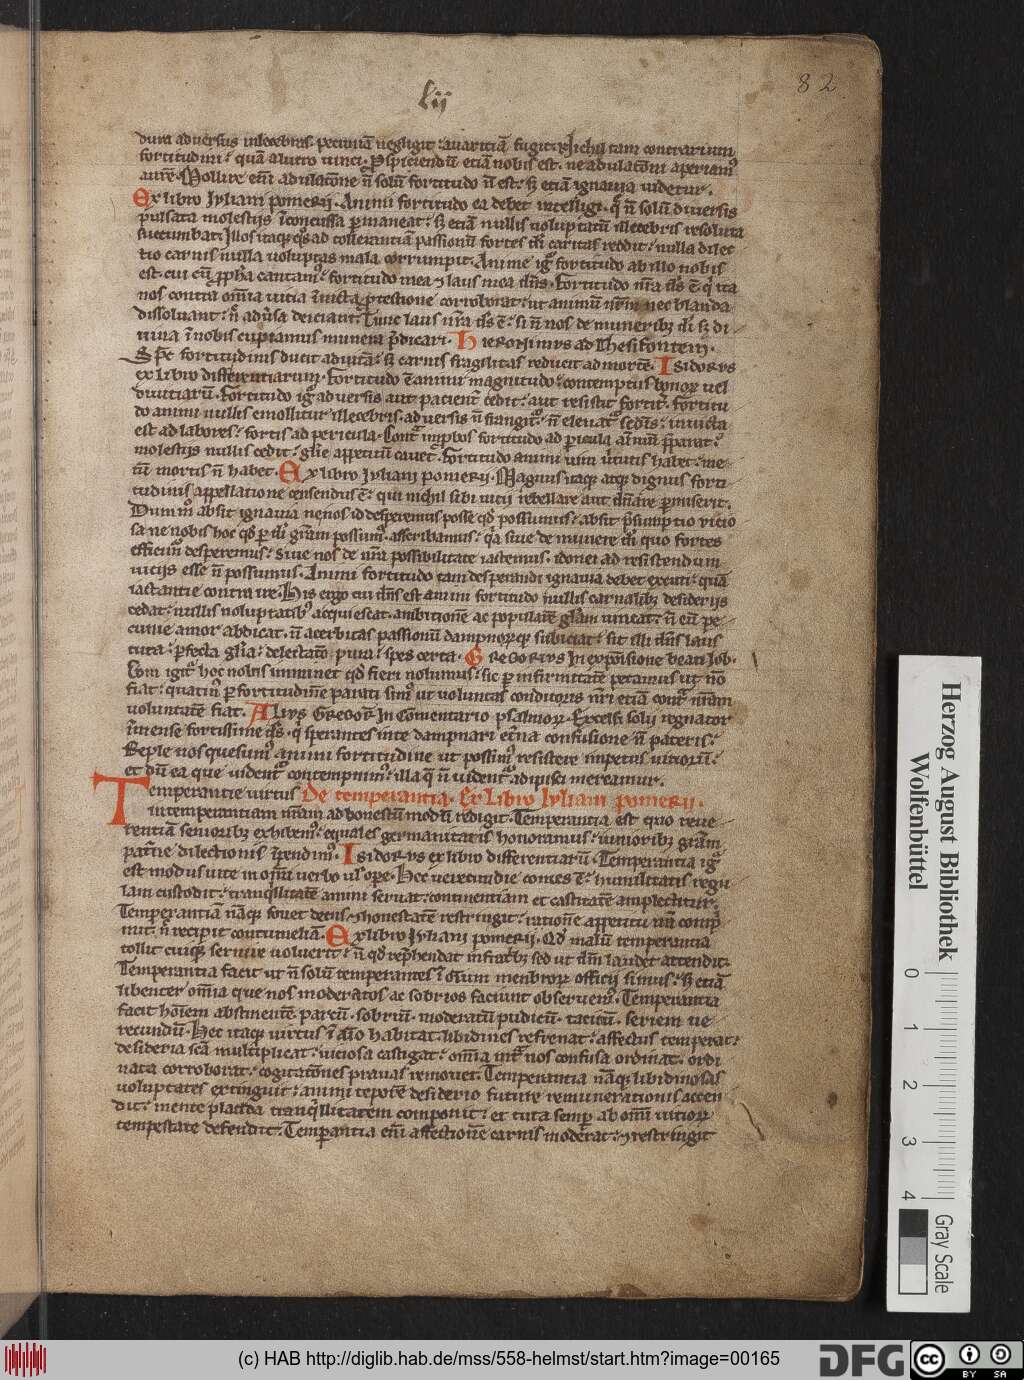 lij
82
dura adversus inlecebras. pecuniā negligit. avaritiā fugit. Nichil tam contrarium
fortitudini. quā a lucro vinci. Pspiciendū etiā nobis est. ne adulatōni aperiamꝰ
aurē. Mollire enī adulatōne ñ solū fortitudo ñ est. sꝫ etiā ignavia videtur.
Ex libro Iuliani pomerij. Animi fortitudo ea debet intelligi. q̄ ñ solū diversis
pulsata molestijs īconcussa pmaneat. sꝫ etiā nullis voluptatū illecebris resoluta
succumbat. Illos itaqꝫ qͦs ad tollerantiā passionū fortes dī caritas reddit. nulla dilec
tio carnis nulla voluptas mala corrumpit. Anime igͥ fortitudo ab illo nobis
est. cui cū ꝓpha cantamꝰ. fortitudo mea ⁊ laus mea dñs. Fortitudo nr̄a ds̄ ē q̄ ita
nos contra om̄ia vitia īvicta ꝓtectione corroborat. ut animū nr̄m nec blanda
dissoluant. n̄ adv̄sa deiciant. Tunc laus nr̄a ds̄ ē. si ñ nos de muneribꝫ dī sꝫ di
vina ī nobis cupiamus munera p̄dicari. HIERONIMVS ad Thesifontem.
Spē fortitudinis ducit ad vitā. sꝫ carnis fragilitas reducit ad mortē. ISIDORVS
ex libro differentiarum. Fortitudo ē animi magnitudo. contemptus honoꝝ vel
divitiarū. Fortitudo igͥ adversis aut patient᷑ cedit. aut resistit fortit᷑. Fortitu
do animi nullis emollitur illecebris. adversis ñ frangitᷣ. ñ elevatᷣ secd̄is. invicta
est ad labores. fortis ad pericula. Contͣ improbos fortitudo ad picula anīmū p̄parat.
molestijs nullis cedit. glīe appetitū cavet. Fortitudo animi vim v̄tutis habet. me
tū mortis ñ habet. Ex libro Iuliani pomerij. Magnus itaqꝫ atqꝫ dignus forti
tudinis appellatione censendus ē. qui nichil sibi vitij rebellare aut dn̄are pmiserit.
Dummͦ absit ignavia ne nos id desperemus posse qd̄ possumus. absit p̄sumptio vicio
sa ne nobis hoc qd̄ p dī grām possumꝰ. asscribamus. qͥa sive de munere dī quo fortes
efficimꝰ desperemus. sive nos de nr̄a possibilitate iactemus. idonei ad resistendum
vicijs esse ñ possumus. Animi fortitudo tam desperandi ignavia debet excuti. quā
iactantie contraire. His ergo cui dn̄s est animi fortitudo nullis carnalibꝫ desiderijs
cedat. nullis voluptatibꝰ acquiescat. ambitionē ac popularē glām vincat. ñ eū pe
cunie amor abdicat. ñ acerbitas passionū dampnorūqꝫ subiciat. sit illi dn̄s laus
tuta. pfecta glīa. delectatio pura. spes certa. GREGORIVS In expn̄sione beati Iob.
Com igitᷣ hoc nobis imminet qd̄ fieri nolumus. sic p infirmitatē petamus ut nō
fiat. quatinꝰ p fortitudinē parati simꝰ ut voluntas conditoris nr̄i etiā contͣ nr̄am
voluntatē fiat. ALIVS GREGOR̄ In Comentario psalmoꝝ. Excelsi solij regnator
imense fortissime ds̄. q̄ sperantes in te dampnari et᷑na confusione ñ pateris.
Reple nos quesumꝰ animi fortitudine ut possimꝰ resistere impetus vitioꝝ.
et dū ea que vident᷑ contempnimꝰ. illa q̄ ñ vident᷑ adipisci mereamur.
Temperantie virtus De temperantia. Ex Libro Iuliani pomerij.
intemperantiam nr̄am ad honestū modū redigit. Temperantia est quo reve
rentiā senioribꝫ exhibemꝰ. equales germanitatis honoramus. iunioribꝫ grām
patn̄e dilectionis īpendimꝰ. ISIDORVS ex libro differentiarū. Temperantia igͥ
est modus vite in om̄i verbo vꝉ oꝑe. Hec verecundie comes ē. humilitatis regu
lam custodit. tranqͥllitatē animi servat. continentiam et castitatē amplectitur.
Temperantia nāqꝫ fovet decus. ⁊ honestatē restringit. ratione appetitū
mit. ñ recipit contumeliā. Ex libro Iuliani pomerij. Qd̄ malū temperantia
tollit cuiqꝫ servire voluerit. ñ qd̄ rep̄hendat infratribꝫ sed ut dn̄i laudet attendit.
Temperantia facit ut ñ solū temperantes ī oīum membroꝝ officij simus. sꝫ etiā
libenter om̄ia que nos moderatos ac sobrios faciunt observemꝰ. Temperantia
facit hoīem abstinentē parcū. sobriū. moderatū pudicū. tacitū. seriem ve
recundū. Hec itaqꝫ virtus ī aīo habitat. libidines refrenat. affectus temperat.
desideria scā multiplicat. viciosa castigat. om̄ia intͣ nos confusa ordinat. ordi
nata corroborat. cogitatōnes pravas removet. Temperantia nāqꝫ libidinosas
voluptates extinguit. animi teporē desiderio future remunerationis accen
dit. mente placida tranqͥllitatem componit. et tuta semp ab om̄i vitioꝝ
tempestate defendit. Tempantia enī affectionē carnis moderat. ⁊ restringit
Herzog August Bibliothek
Wolfenbüttel
0 1 2 3 4
Gray Scale
(c) HAB http://diglib.hab.de/mss/558-helmst/start.htm?image=00165
DFG
cc BY SA